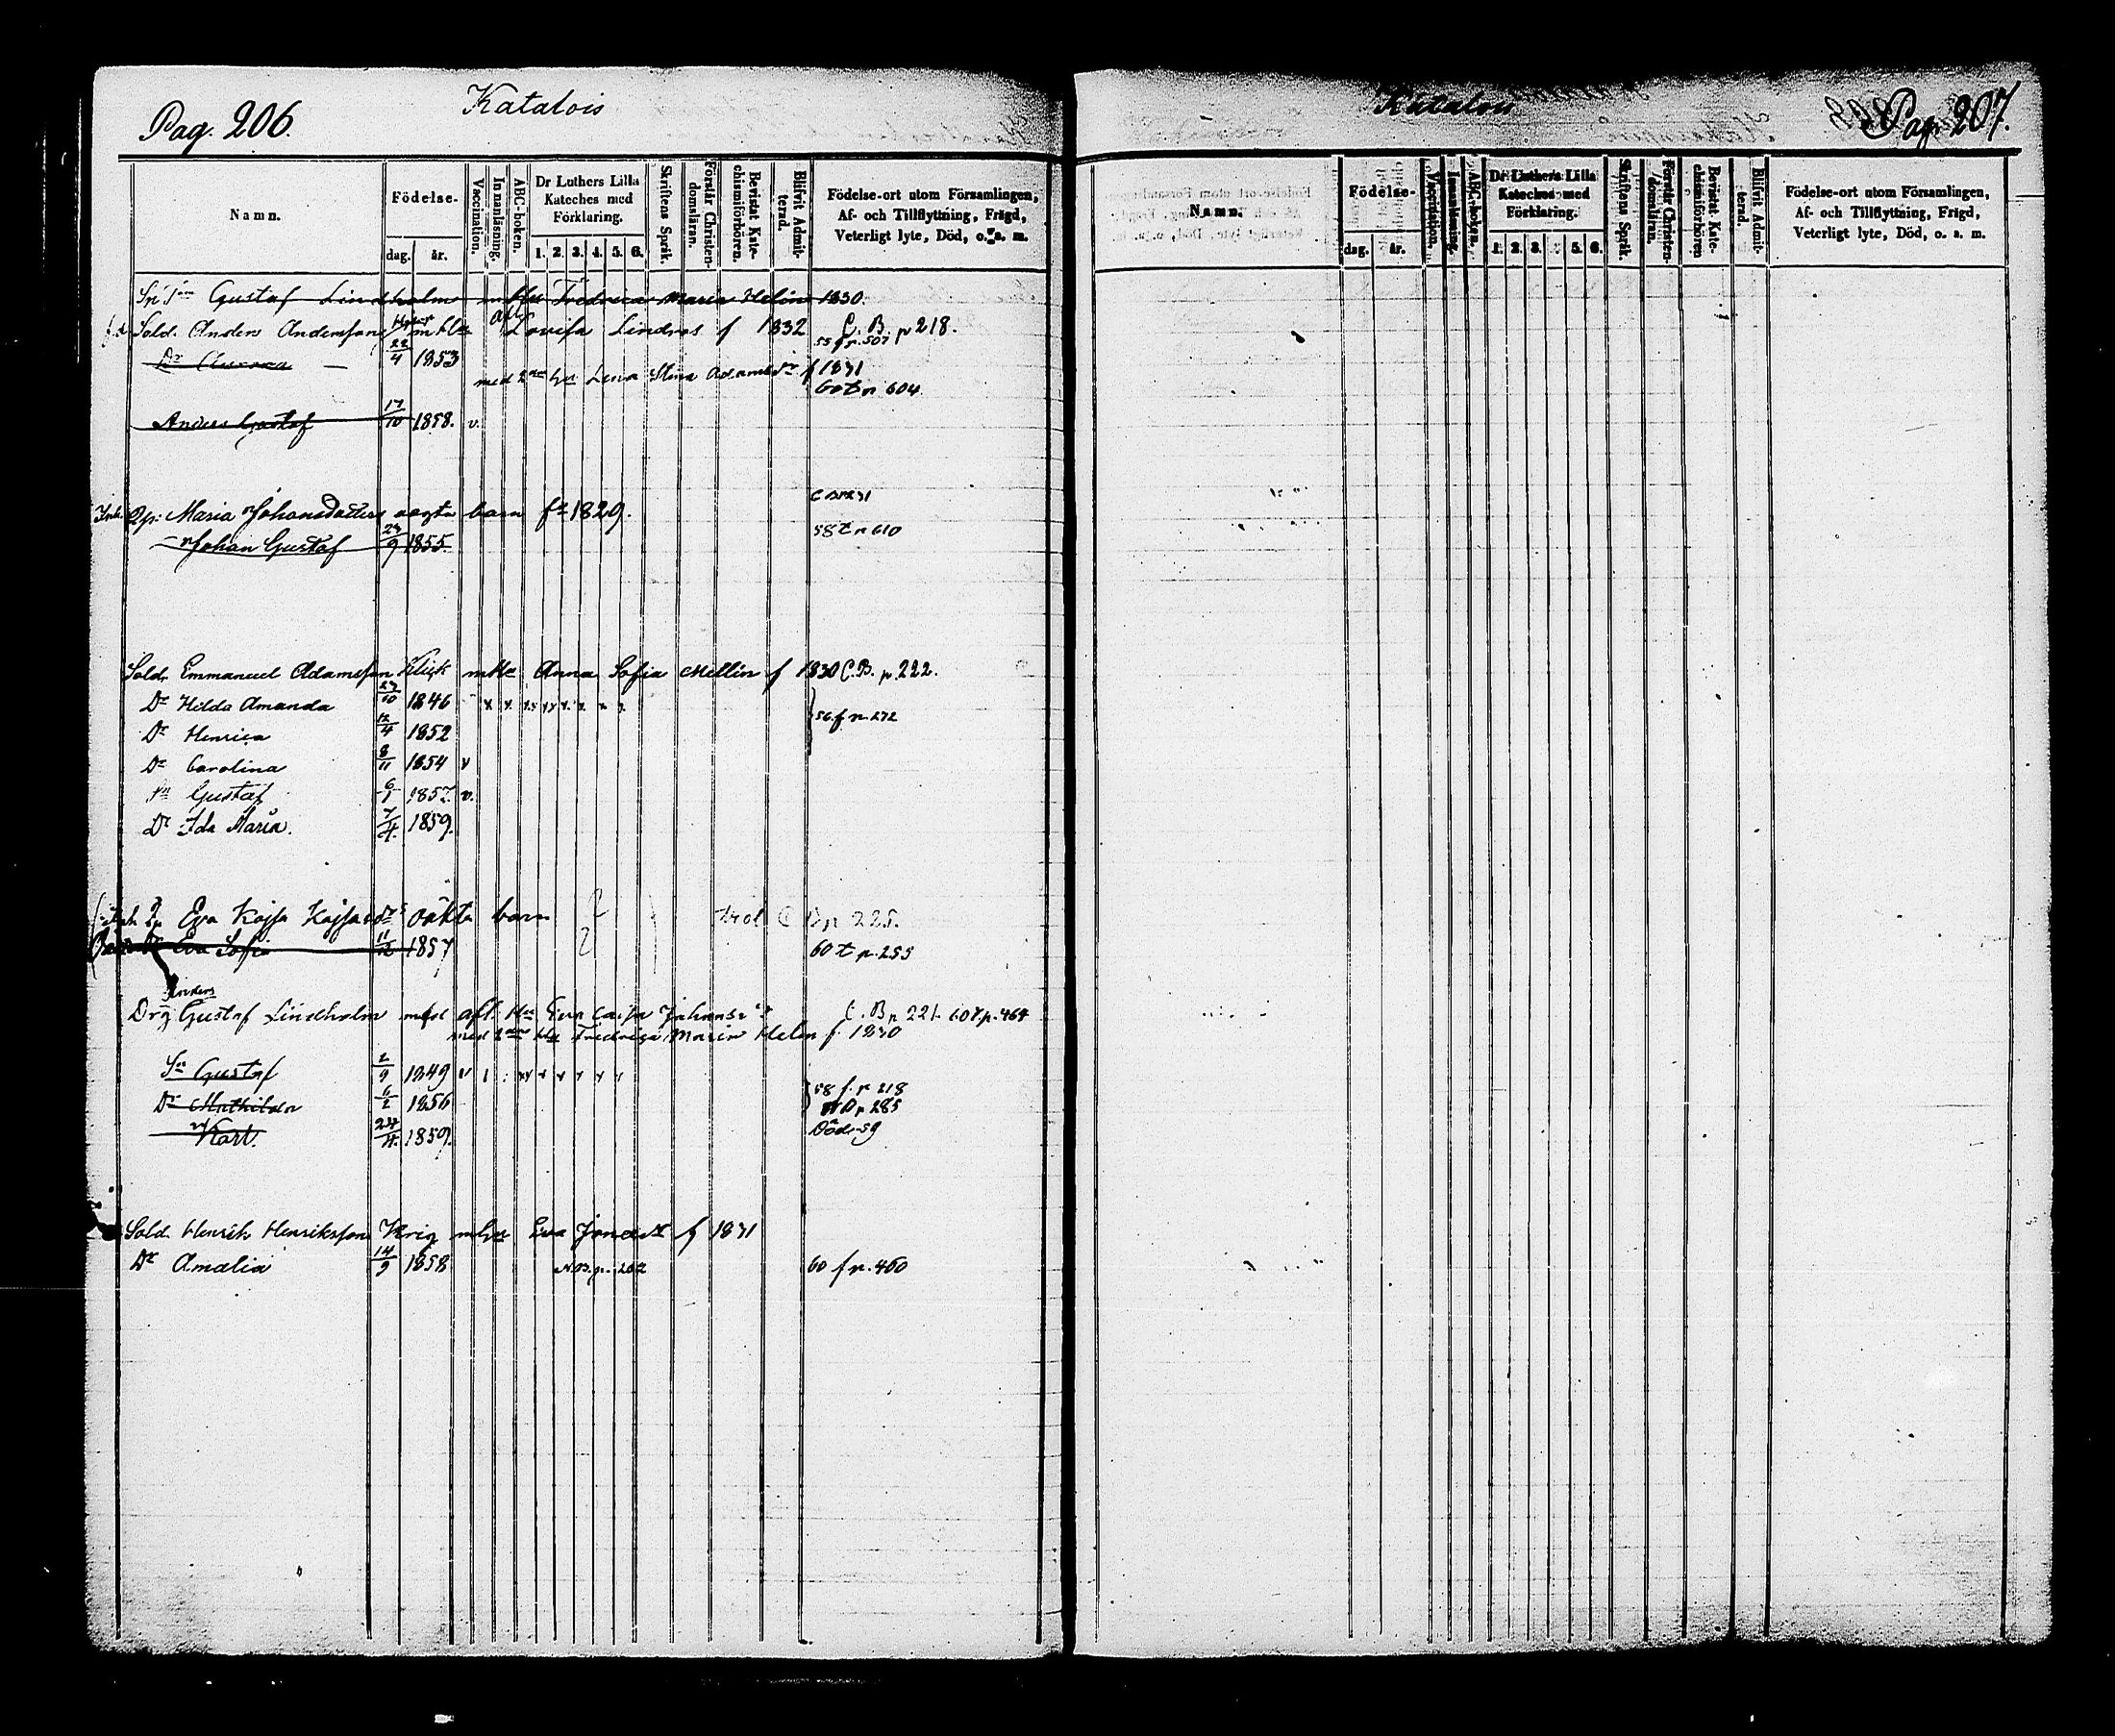 Pag. 206.
Katalois
Namn.
Födelse-
dag.
år.
Vaccination.
Innanläsning.
ABC-boken.
Dr Luthers Lilla Kateches med Förklaring.
1. 2. 3. 4. 5. 6.
Skriftens Språk.
Förstår Christendomsläran.
Bevistat Katechismiförhören.
Blifvit Admitterad.
Födelse-ort utom Församlingen,
Af- och Tillflyttning, Frägd,
Veterligt lyte, Död, o. a. m.
Gustaf Lindholm m hu Fredrica Maria Helin 1830.
Sold. Anders Andersson m hu Lovisa Lindros f 1832 C. B. p 218.
55 f p. 507
Dr Aurora 22/4 1853
med 2 hu Lena Stina Adamsdr f 1831
60 t p 604
Anders Gustaf 17/10 1858. v.
Maria Johansdotters oägta barn f 1829.
Johan Gustaf 29/9 1855. 58 t p 610
Sold. Emmanuel Adamsson Klick m hu Anna Sofia Mellin f 1830 C.B. p. 222.
Dr Hilda Amanda 29/10 1846
Dr Henrica 12/4 1852 56 f p. 272
Dr Carolina 8/11 1854 v
Sn Gustaf 6/1 1857. v.
Dr Ida Maria. 7/4 1859.
Eva Kajsa Kajsasdrs oäkta barn p 225.
Eva Sofia 11/12 1857 60 t p. 255
Anders
Gustaf Lindholm med afl. Hu Eva Caisa Johansdr C. B p 221. 60 t p. 464
med 2 hu Fredrica Maria Helin f. 1830
Sn Gustaf 2/9 1849 v
58 f. p 218
Dr Mathilda 6/2 1856
p 285
Karl. 24/4 1859. Död 59
Sold. Henrik Henriksson Krig m hu Eva Jonasdr f 1831
Dr Amalia 14/9 1858 N.B. p. 202 60 f p. 460
Katalois
Pag. 207.
Namn.
Födelse-
dag.
år.
Vaccination.
Innanläsning.
ABC-boken.
Dr Luthers Lilla Kateches med Förklaring.
1. 2. 3. 5. 6.
Skriftens Språk.
Förstår Christendomsläran.
Bevistat Katechismiförhören
Blifvit Admitterad.
Födelse-ort utom Församlingen,
Af- och Tillflyttning, Frigd,
Veterligt lyte, Död, o. a. m.